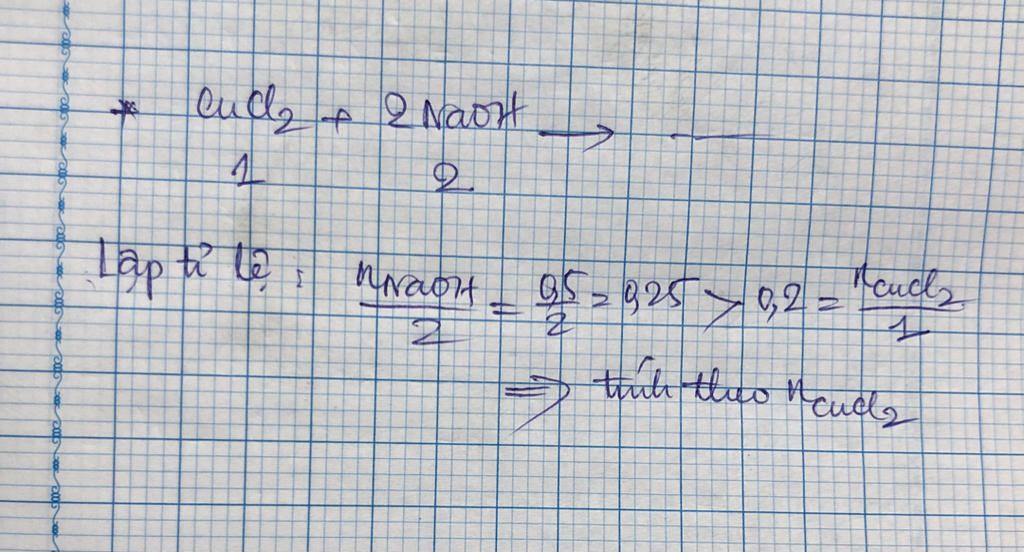 * CuCl2 + 2NaOH → —
1 2
Lập tỉ lệ: nNaOH/2 = 0,5/2 = 0,25 > 0,2 = nCuCl2/1
⇒ tính theo nCuCl2